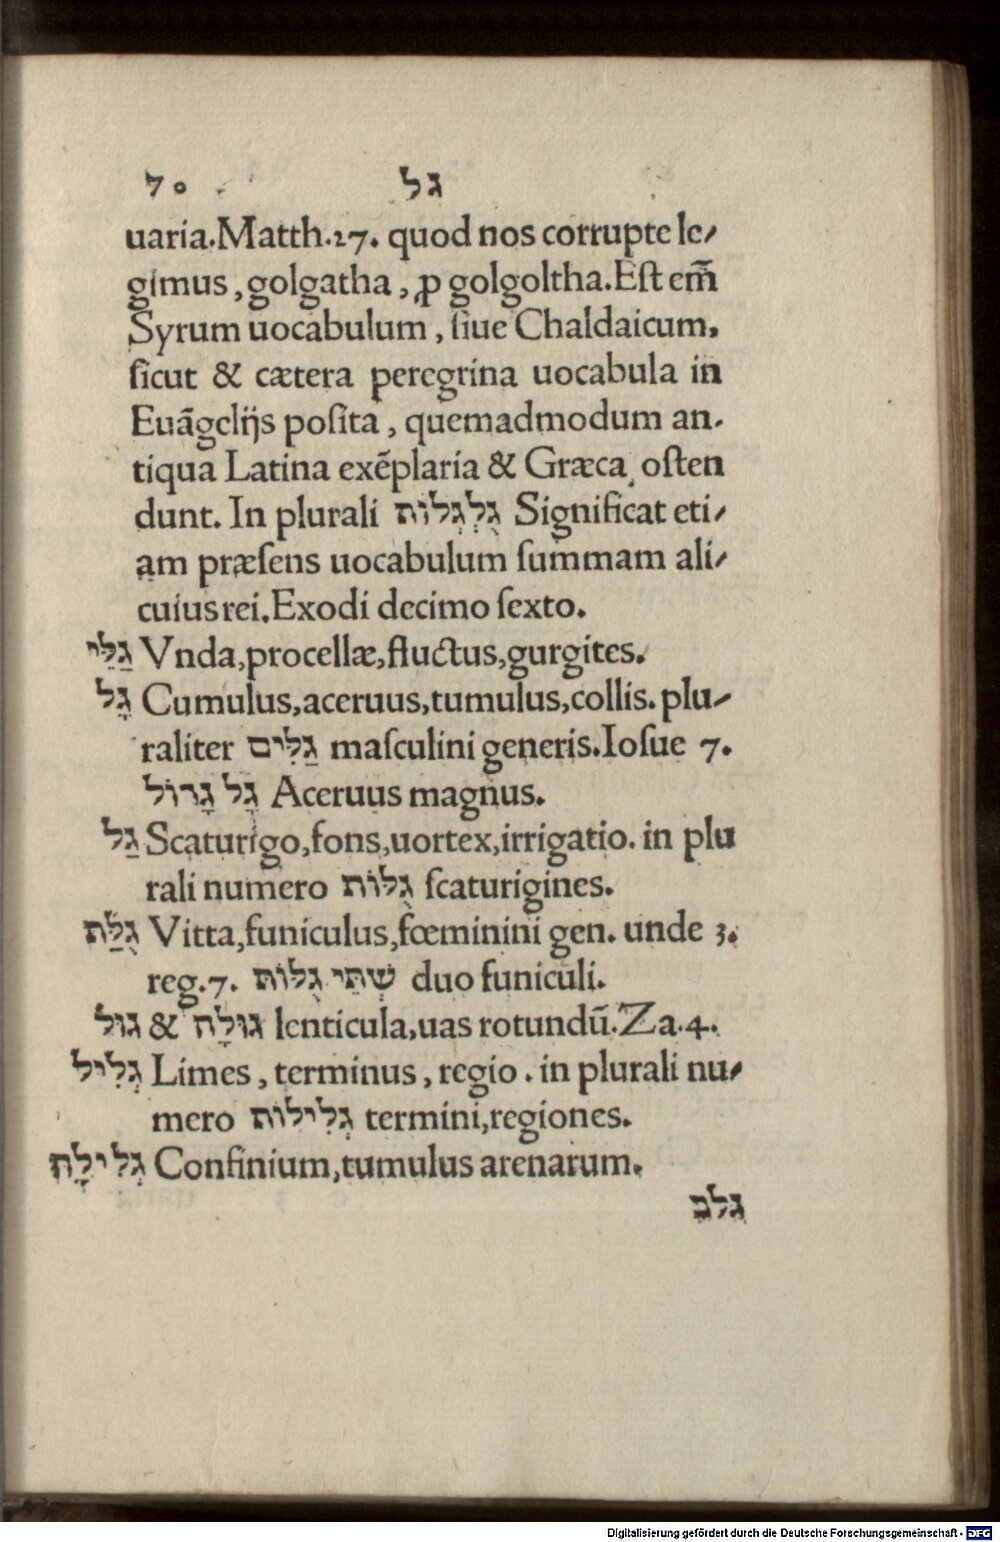 70 גל
uaria.Matth.27. quod nos corrupte le/
gimus, golgatha, ꝓ golgoltha.Eſt em̃
Syrum uocabulum, ſiue Chaldaicum,
ſicut & cætera peregrina uocabula in
Euãgelijs poſita, quemadmodum an/
tiqua Latina exẽplaria & Græca, oſten
dunt. In plurali גֻלְגְלוֹת Significat eti/
am præſens uocabulum ſummam ali/
cuius rei.Exodi decimo ſexto.
גַלֵי Vnda,procellæ,fluctus,gurgites.
גָל Cumulus,aceruus,tumulus,collis. plu/
raliter גַלִים maſculini generis.Ioſue 7.
גָל גָדוֹל Aceruus magnus.
גַל Scaturigo,fons,uortex,irrigatio. in plu
rali numero גֻלוֹת ſcaturigines.
גֻלַת Vitta,funiculus,fœminini gen. unde 3.
reg.7. שְׁתֵּי גֻלוֹת duo funiculi.
גול & גולָה lenticula,uas rotundũ.Za.4.
גְלִיל Limes, terminus, regio. in plurali nu/
mero גְלִילוֹת termini,regiones.
גְלִילָה Confinium,tumulus arenarum.
גלב
Digitalisierung gefördert durch die Deutsche Forschungsgemeinschaft - DFG